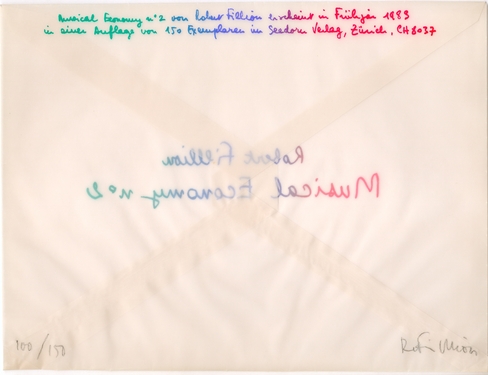 Musical Economy n°2 von Robert Filliou erscheint im Frühjar 1983
in einer Auflage von 150 Exemplaren im Seedorn Verlag, Zürich, CH 8037
Robert Filliou
Musical Economy n°2
100/150
R. Filliou